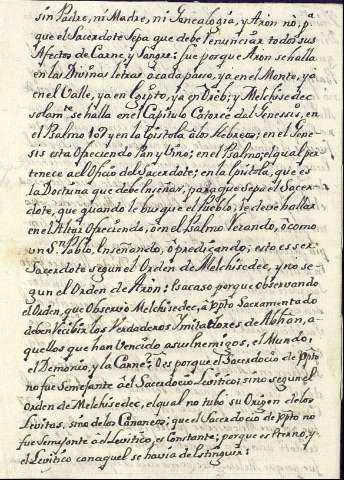 sin Padre, ni Madre, ni Genealogia, y Aron no, p.ª
que el Sacerdote Sepa que debe renunciar todos sus
Afectos de Carne, y Sangre: fue porque Aron se halla
en las Divinas letras à cada passo, ya en el Monte, ya
en el Valle, ya en Egipto, ya en Oreb; y Melchisedec
solam.te se halla en el Capitulo Catorce del Genessis, en
el Psalmo 109 y en la Epistola à los Hebreos; en el Gene-
sis esta Ofreciendo Pan y Vino; en el Psalmo; el qual per-
tenece al Oficio del Sacerdote; en la Epistola, que es
la Doctrina que debe Enseñar, para que sepa el Sacer-
dote, que quando le busque el Pueblo, le deve hallar
en el Altar Ofreciendo, ò en el Psalmo Rezando, ò como
un Sn. Pablo, Enseñando, ò predicando; esto es ser
Sacerdote segun el Orden de Melchisedec, y no se-
gun el Orden de Aron: Es acaso porque observando
el Orden, que Observò Melchisedec, à Xpto Sacramentado
deben recibir los Verdaderos Imitadores de Abhan, a-
quellos que han Vencido a sus Enemigos, el Mundo,
el Demonio, y la Carne? O es porque el Sacerdocio de Xpto
no fue Semejante àel Sacerdocio Levitico; sino segun el
Orden de Melchisedec, el qual no tubo su Origen de los
Levitas, sino de los Cananeos; que el Sacerdocio de Xpto no
fue Semejante àel Levitico, es Constante; porque es Eterno, y
el Levitico con aquel se havia de Extinguir: